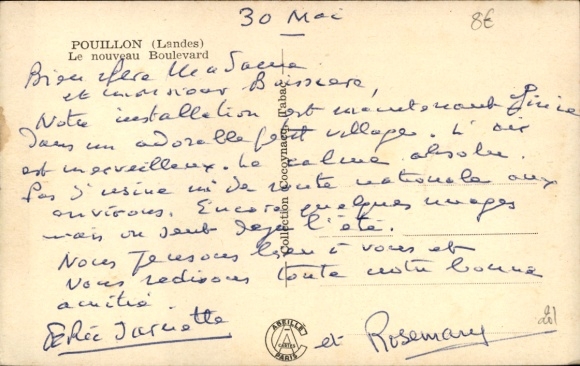 30 Mai
8€
POUILLON (Landes)
Le nouveau Boulevard
Bien chère Madame
et monsieur Boissiere,
Notre installation est maintenant finie
dans un adorable petit village. L'air
est merveilleux. Le calme absolu.
Pas d'usine ni de route nationale aux
environs. Encore quelques nuages
mais on sent déjà l'été.
Nous pensons bien à vous et
Nous redisons toute notre bonne
amitié.
et Rosemary
Collection Cocoynacq - Tabac
ABEILLE
CARTES
PARIS